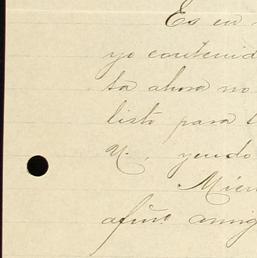 Es en
yo contenid
ta ahora no
listo para l
N., yendo
Mien
afmo. amig